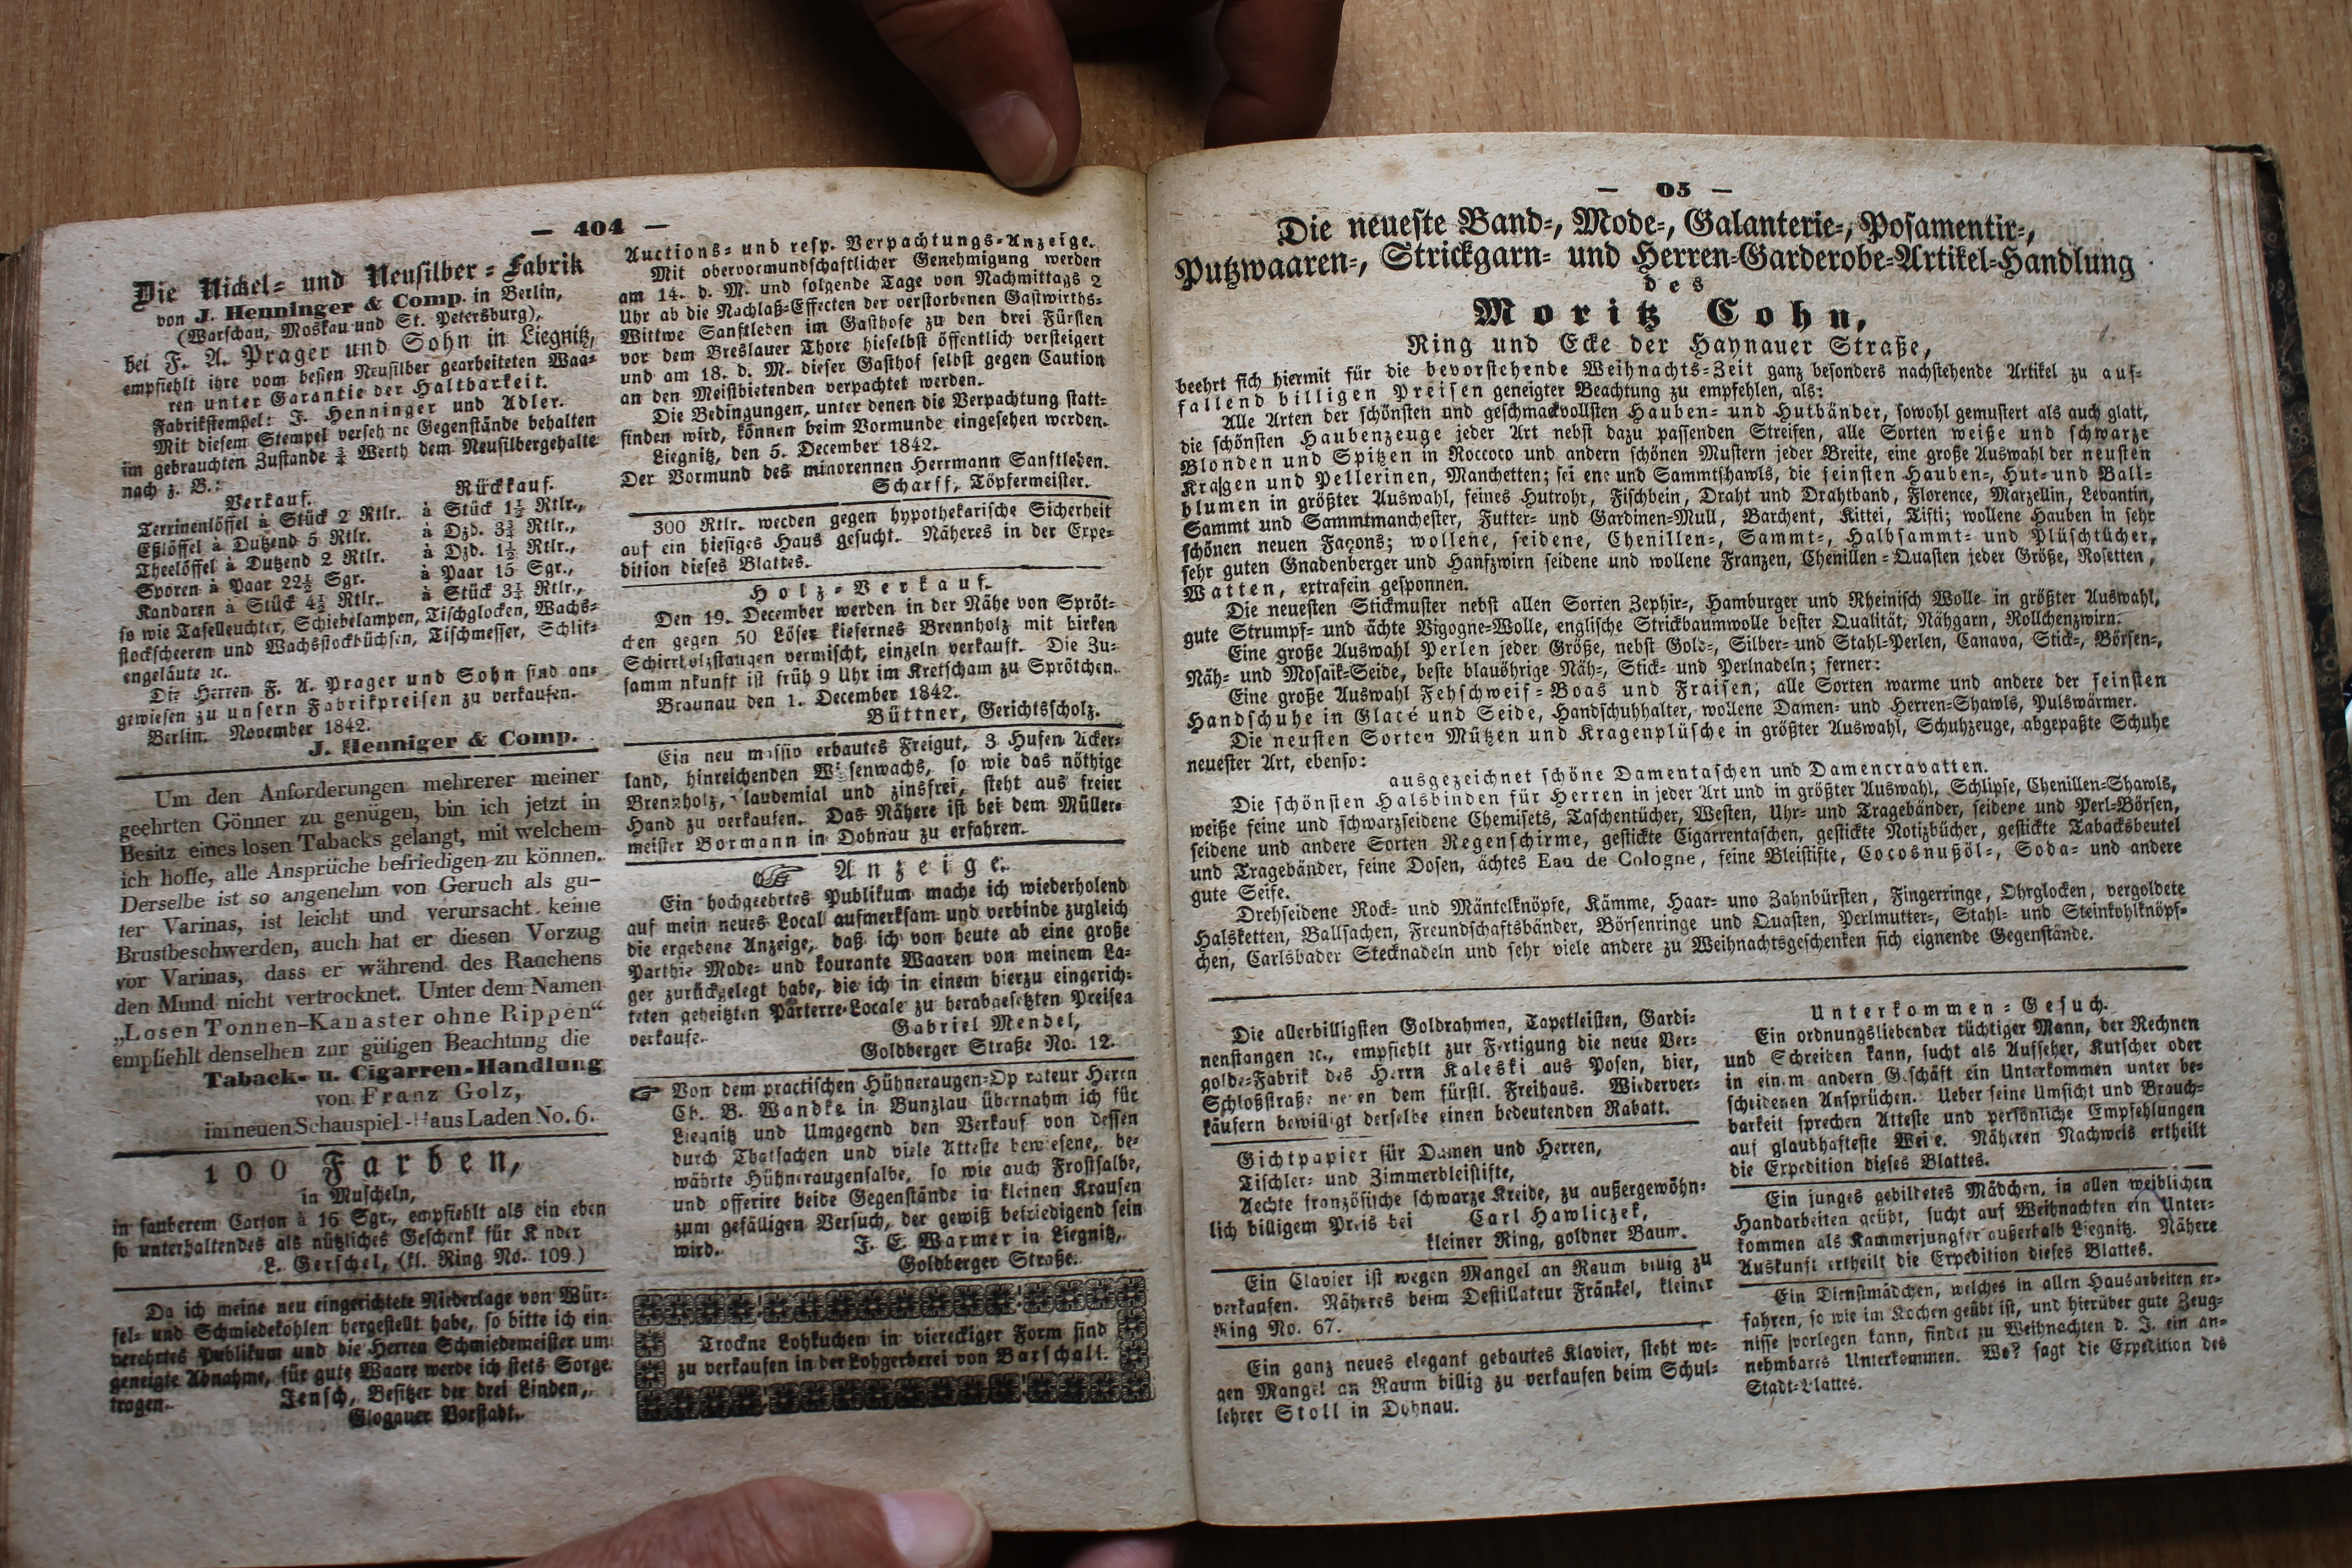 — 404 —
Die Nickel- und Neusilber-Fabrik
von J. Henninger & Comp. in Berlin,
(Warschau, Moskau und St. Petersburg),
bei F. A. Prager und Sohn in Liegnitz,
empfiehlt ihre vom besten Neusilber gearbeiteten Waa-
ren unter Garantie der Haltbarkeit.
Fabrikstempel: J. Henninger und Adler.
Mit diesem Stempel verseh ne Gegenstände behalten
im gebrauchten Zustande ¾ Werth dem Neusilbergehalte
nach z. B.:
Verkauf. Rückkauf.
Terrinenlöffel à Stück 2 Rtlr. à Stück 1½ Rtlr.,
Eßlöffel à Dutzend 5 Rtlr. à Dzd. 3¾ Rtlr.,
Theelöffel à Dutzend 2 Rtlr. à Dzd. 1½ Rtlr.,
Sporen à Paar 22½ Sgr. à Paar 15 Sgr.,
Kandaren à Stück 4½ Rtlr. à Stück 3¼ Rtlr.,
so wie Tafelleuchter, Schiebelampen, Tischglocken, Wachs-
stockscheeren und Wachsstockbüchsen, Tischmesser, Schlit-
tengeläute ꝛc.
Die Herren F. A. Prager und Sohn sind an-
gewiesen zu unsern Fabrikpreisen zu verkaufen.
Berlin. November 1842.
J. Henniger & Comp.
Um den Anforderungen mehrerer meiner
geehrten Gönner zu genügen, bin ich jetzt in
Besitz eines losen Tabacks gelangt, mit welchem
ich hoffe, alle Ansprüche befriedigen zu können.
Derselbe ist so angenehm von Geruch als gu-
ter Varinas, ist leicht und verursacht keine
Brustbeschwerden, auch hat er diesen Vorzug
vor Varinas, dass er während des Rauchens
den Mund nicht vertrocknet. Unter dem Namen
„Losen Tonnen-Kanaster ohne Rippen“
empfiehlt denselben zur gütigen Beachtung die
Taback- u. Cigarren-Handlung
von Franz Golz,
im neuen Schauspiel-Haus Laden No. 6.
100 Farben,
in Muscheln,
in sauberem Carton à 16 Sgr., empfiehlt als ein eben
so unterhaltendes als nützliches Geschenk für K nder
L. Gerschel, (kl. Ring No. 109.)
Da ich meine neu eingerichtete Niederlage von Wür-
fel- und Schmiedekohlen hergestellt habe, so bitte ich ein
verehrtes Publikum und die Herren Schmiedemeister um
geneigte Abnahme, für gute Waare werde ich stets Sorge
tragen. Jensch, Besitzer der drei Linden,
Glogauer Vorstadt.
Auctions- und resp. Verpachtungs-Anzeige.
Mit obervormundschaftlicher Genehmigung werden
am 14. d. M. und folgende Tage von Nachmittags 2
Uhr ab die Nachlaß-Effecten der verstorbenen Gastwirths-
Wittwe Sanftleben im Gasthofe zu den drei Fürsten
vor dem Breslauer Thore hieselbst öffentlich versteigert
und am 18. d. M. dieser Gasthof selbst gegen Caution
an den Meistbietenden verpachtet werden.
Die Bedingungen, unter denen die Verpachtung statt-
finden wird, können beim Vormunde eingesehen werden.
Liegnitz, den 5. December 1842.
Der Vormund des minorennen Herrmann Sanftleben.
Scharff, Töpfermeister.
300 Rtlr. werden gegen hypothekarische Sicherheit
auf ein hiesiges Haus gesucht. Näheres in der Expe-
dition dieses Blattes.
Holz-Verkauf.
Den 19. December werden in der Nähe von Spröt-
chen gegen 50 Löser kiefernes Brennholz mit birken
Schirrholzstangen vermischt, einzeln verkauft. Die Zu-
samm nkunft ist früh 9 Uhr im Kretscham zu Sprötchen.
Braunau den 1. December 1842.
Büttner, Gerichtsscholz.
Ein neu massiv erbautes Freigut, 3 Hufen Acker-
land, hinreichenden Wiesenwachs, so wie das nöthige
Brennholz, laudemial und zinsfrei, steht aus freier
Hand zu verkaufen. Das Nähere ist bei dem Müller-
meister Bormann in Dohnau zu erfahren.
☞ Anzeige.
Ein hochgeehrtes Publikum mache ich wiederholend
auf mein neues Local aufmerksam und verbinde zugleich
die ergebene Anzeige, daß ich von heute ab eine große
Parthie Mode- und kourante Waaren von meinem La-
ger zurückgelegt habe, die ich in einem hierzu eingerich-
teten geheitzten Parterre-Locale zu herabgesetzten Preisen
verkaufe. Gabriel Mendel,
Goldberger Straße No. 12.
☞ Von dem practischen Hühneraugen-Op rateur Herrn
Ch. B. Wandke in Bunzlau übernahm ich für
Liegnitz und Umgegend den Verkauf von dessen
durch Thatsachen und viele Atteste bewiesene, be-
währte Hühneraugensalbe, so wie auch Frostsalbe,
und offerire beide Gegenstände in kleinen Krausen
zum gefälligen Versuch, der gewiß befriedigend sein
wird. J. E. Warmer in Liegnitz,
Goldberger Straße.
Trockne Lohkuchen in viereckiger Form sind
zu verkaufen in der Lohgerberei von Barschall.
— 05 —
Die neueste Band-, Mode-, Galanterie-, Posamentir-,
Putzwaaren-, Strickgarn- und Herren-Garderobe-Artikel-Handlung
des
Moritz Cohn,
Ring und Ecke der Haynauer Straße,
beehrt sich hiermit für die bevorstehende Weihnachts-Zeit ganz besonders nachstehende Artikel zu auf-
fallend billigen Preisen geneigter Beachtung zu empfehlen, als:
Alle Arten der schönsten und geschmackvollsten Hauben- und Hutbänder, sowohl gemustert als auch glatt,
die schönsten Haubenzeuge jeder Art nebst dazu passenden Streifen, alle Sorten weiße und schwarze
Blonden und Spitzen in Roccoco und andern schönen Mustern jeder Breite, eine große Auswahl der neusten
Kragen und Pellerinen, Manchetten; sei ene und Sammtshawls, die feinsten Hauben-, Hut- und Ball-
blumen in größter Auswahl, feines Hutrohr, Fischbein, Draht und Drahtband, Florence, Marzellin, Levantin,
Sammt und Sammtmanchester, Futter- und Gardinen-Mull, Barchent, Kittei, Tifti; wollene Hauben in sehr
schönen neuen Façons; wollene, seidene, Chenillen-, Sammt-, Halbsammt- und Plüschtücher,
sehr guten Gnadenberger und Hanfzwirn seidene und wollene Franzen, Chenillen-Quasten jeder Größe, Rosetten,
Watten, extrafein gesponnen.
Die neuesten Stickmuster nebst allen Sorten Zephir-, Hamburger und Rheinisch Wolle in größter Auswahl,
gute Strumpf- und ächte Vigogne-Wolle, englische Strickbaumwolle bester Qualität, Nähgarn, Rollchenzwirn.
Eine große Auswahl Perlen jeder Größe, nebst Gold-, Silber- und Stahl-Perlen, Canava, Stick-, Börsen-,
Näh- und Mosaik-Seide, beste blauöhrige Näh-, Stick- und Perlnadeln; ferner:
Eine große Auswahl Fehschweif-Boas und Fraisen, alle Sorten warme und andere der feinsten
Handschuhe in Glacé und Seide, Handschuhhalter, wollene Damen- und Herren-Shawls, Pulswärmer.
Die neusten Sorten Mützen und Kragenplüsche in größter Auswahl, Schuhzeuge, abgepaßte Schuhe
neuester Art, ebenso:
ausgezeichnet schöne Damentaschen und Damencravatten.
Die schönsten Halsbinden für Herren in jeder Art und in größter Auswahl, Schlipse, Chenillen-Shawls,
weiße feine und schwarzseidene Chemisets, Taschentücher, Westen, Uhr- und Tragebänder, seidene und Perl-Börsen,
seidene und andere Sorten Regenschirme, gestickte Cigarrentaschen, gestickte Notizbücher, gestickte Tabacksbeutel
und Tragebänder, feine Dosen, ächtes Eau de Cologne, feine Bleistifte, Cocosnußöl-, Soda- und andere
gute Seife.
Drehseidene Rock- und Mäntelknöpfe, Kämme, Haar- uno Zahnbürsten, Fingerringe, Ohrglocken, vergoldete
Halsketten, Ballsachen, Freundschaftsbänder, Börsenringe und Quasten, Perlmutter-, Stahl- und Steinkohlknöpf-
chen, Carlsbader Stecknadeln und sehr viele andere zu Weihnachtsgeschenken sich eignende Gegenstände.
Die allerbilligsten Goldrahmen, Tapetleisten, Gardi-
nenstangen ꝛc., empfiehlt zur Fertigung die neue Ver-
golde-Fabrik des Herrn Kaleski aus Posen, hier,
Schloßstraße ne en dem fürstl. Freihaus. Wiederver-
käufern bewilligt derselbe einen bedeutenden Rabatt.
Gichtpapier für Damen und Herren,
Tischler- und Zimmerbleistifte,
Aechte französische schwarze Kreide, zu außergewöhn-
lich billigem Preis bei Carl Hawliczek,
kleiner Ring, goldner Baum.
Ein Clavier ist wegen Mangel an Raum billig zu
verkaufen. Näheres beim Destillateur Fränkel, kleiner
Ring No. 67.
Ein ganz neues elegant gebautes Klavier, steht we-
gen Mangel an Raum billig zu verkaufen beim Schul-
lehrer Stoll in Dohnau.
Unterkommen-Gesuch.
Ein ordnungsliebender tüchtiger Mann, der Rechnen
und Schreiben kann, sucht als Aufseher, Kutscher oder
in einem andern Geschäft ein Unterkommen unter be-
scheidenen Ansprüchen. Ueber seine Umsicht und Brauch-
barkeit sprechen Atteste und persönliche Empfehlungen
auf glaubhafteste Wei e. Näheren Nachweis ertheilt
die Expedition dieses Blattes.
Ein junges gebildetes Mädchen, in allen weiblichen
Handarbeiten geübt, sucht auf Weihnachten ein Unter-
kommen als Kammerjungfer außerhalb Liegnitz. Nähere
Auskunft ertheilt die Expedition dieses Blattes.
Ein Dienstmädchen, welches in allen Hausarbeiten er-
fahren, so wie im Kochen geübt ist, und hierüber gute Zeug-
nisse vorlegen kann, findet zu Weihnachten d. J. ein an-
nehmbares Unterkommen. Wo? sagt die Expedition des
Stadt-Blattes.